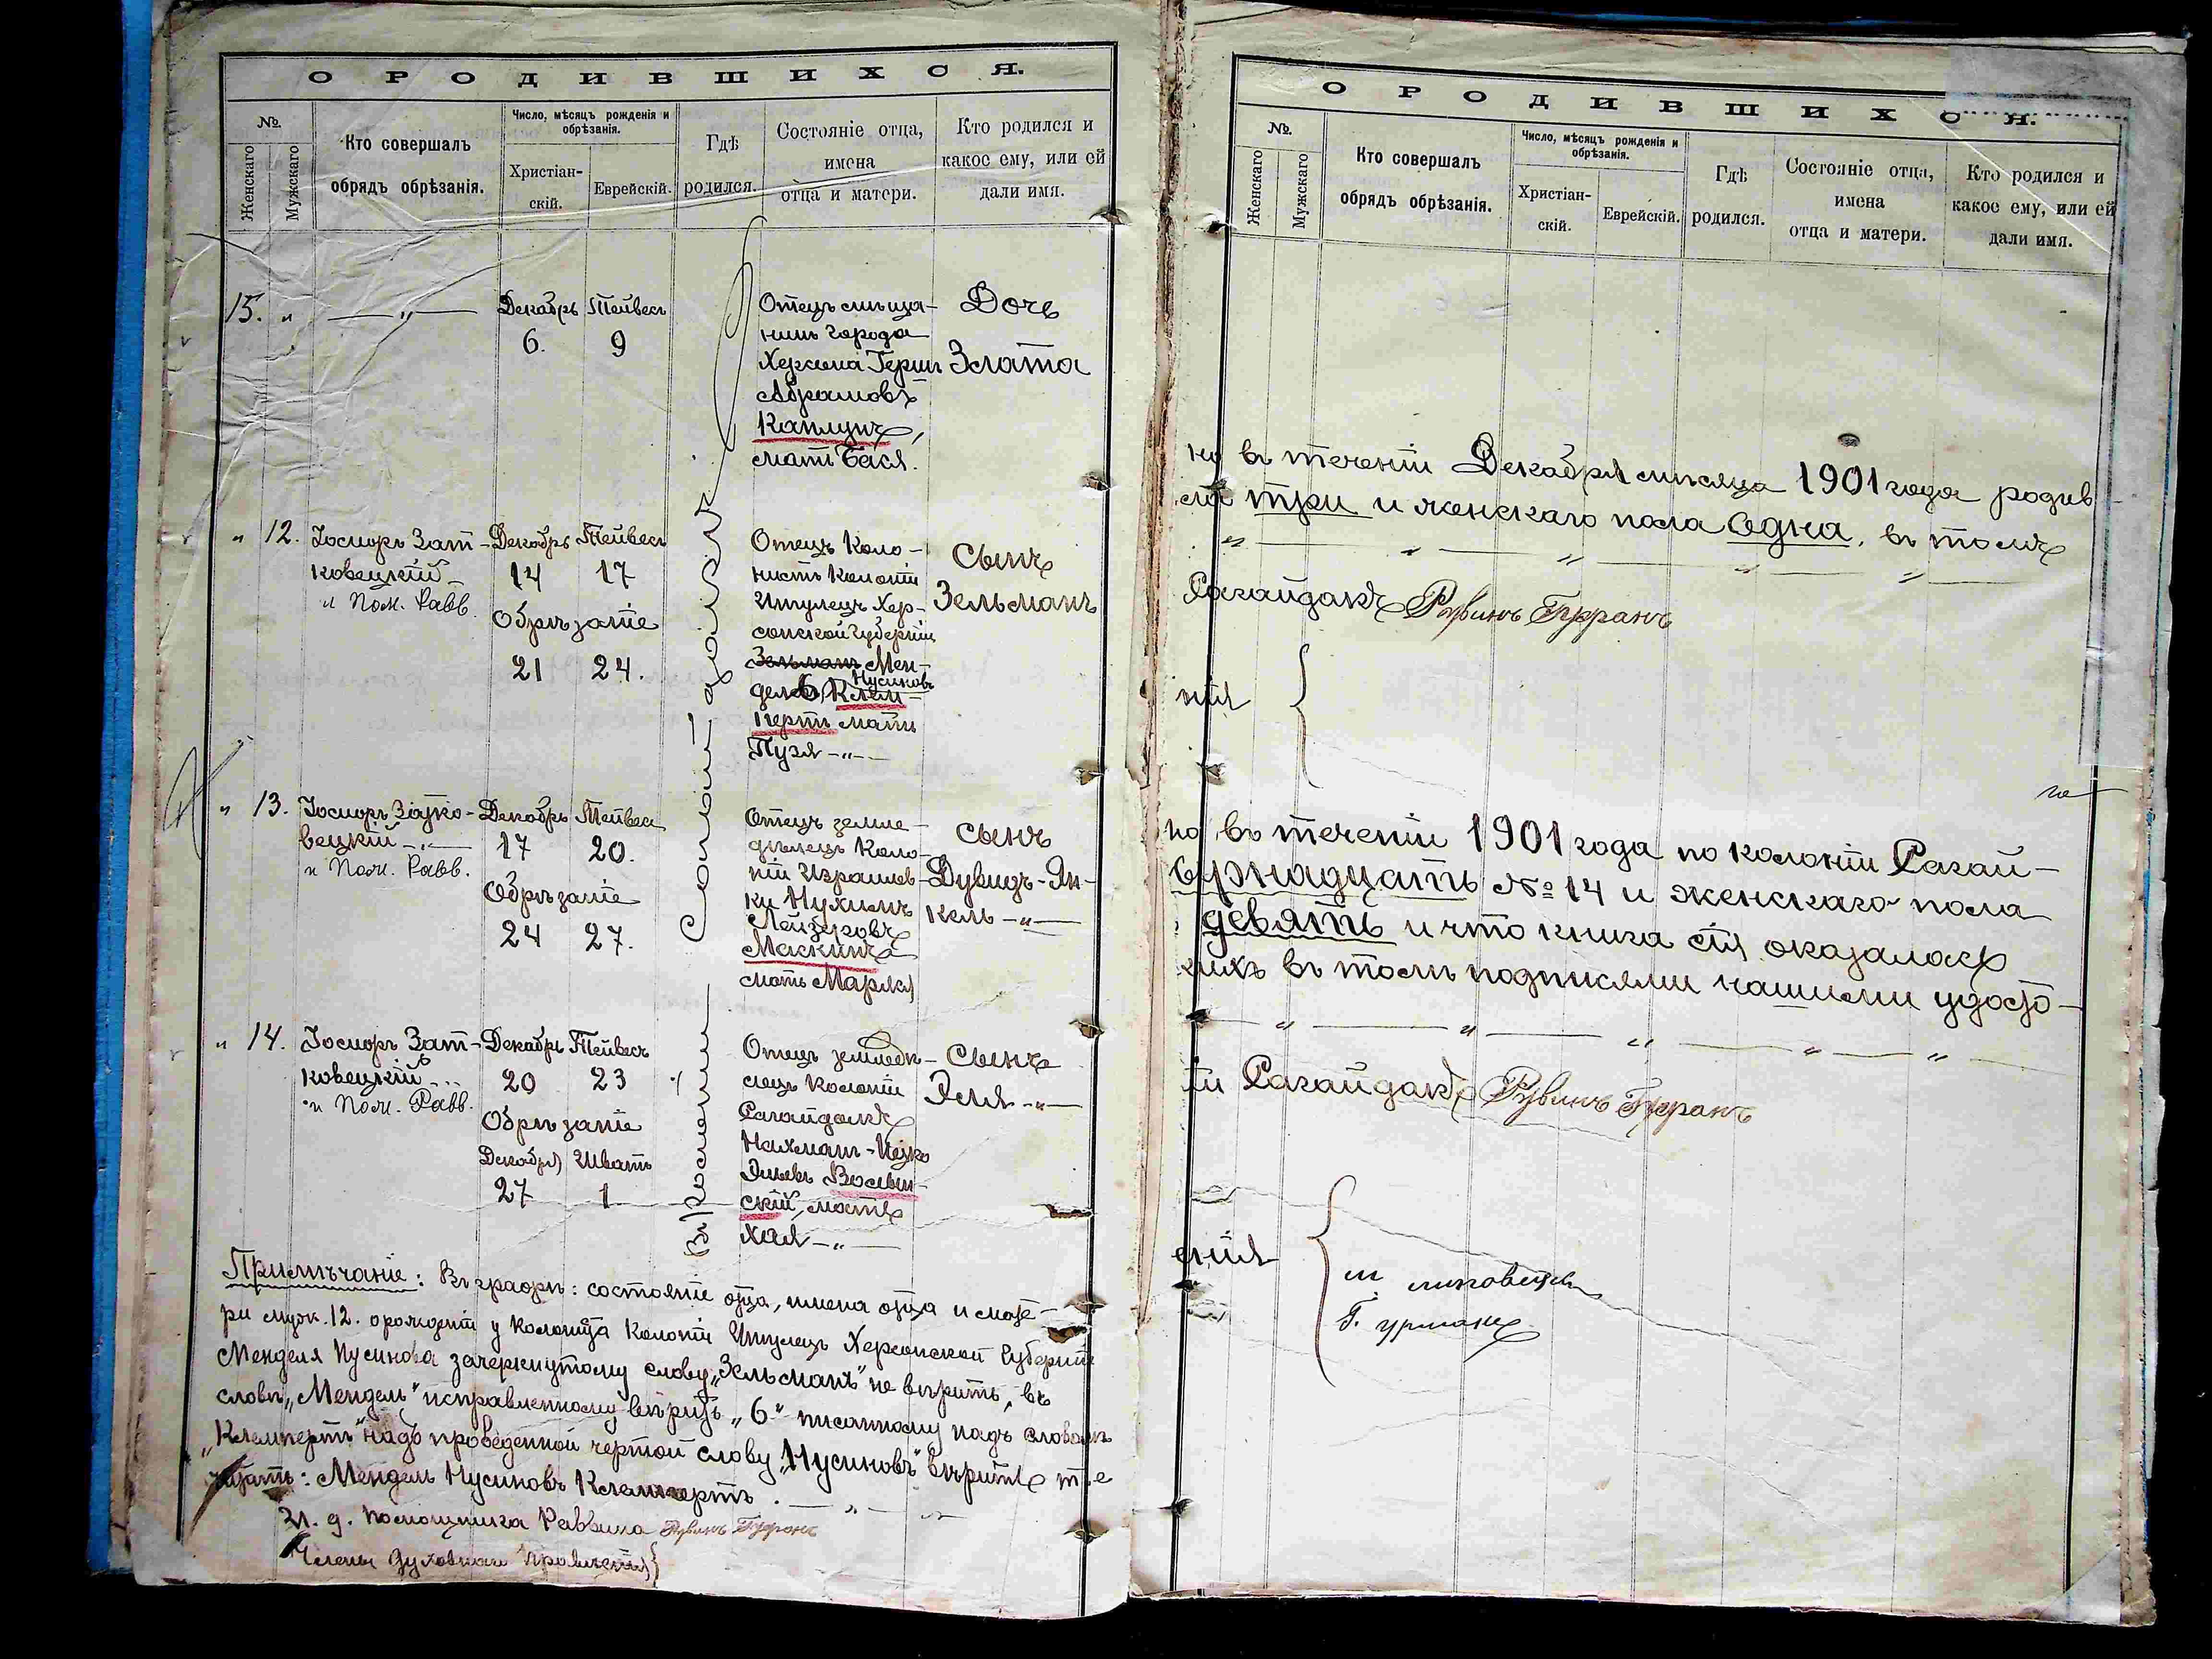 О РОДИВШИХСЯ.
№
Женскаго
Мужскаго
Кто совершалъ
обрядъ обрѣзанія.
Число, мѣсяцъ рожденія и
обрѣзанія.
Христіан-
скій.
Еврейскій.
Гдѣ
родился.
Состояніе отца,
имена
отца и матери.
Кто родился и
какое ему, или ей
дали имя.
15. " — " —
Декабрь Тейвесъ
6. 9
Отецъ мѣща-
нинъ города
Херсона Герш
Абрамовъ
Каплунъ,
мать Бася.
Дочь
Злата
" 12. Іосифъ Зат-
ковецкій
и Пом. Равв.
Декабрь Тейвесъ
14 17
Обрѣзаніе
21 24.
Отецъ Коло-
нистъ Колоніи
Ингулецъ Хер-
сонской Губерніи
Зельманъ Мен-
дель Нусиновъ
Клем-
пертъ мать
Пузя — " —
Сынъ
Зельманъ
" 13. Іосифъ Затко-
вецкій — " —
и Пом. Равв.
Декабрь Тейвес
17 20.
Обрѣзаніе
24 27.
Отецъ земле-
дѣлецъ Коло-
ніи Израилев-
ки Нухимъ
Лейзеровъ
Маскинъ
мать Марья
сынъ
Дувидъ-Ян-
кель — " —
" 14. Іосифъ Зат-
ковецкій
и Пом. Равв.
Декабрь Тейвесъ
20 23
Обрѣзаніе
Декабря Шватъ
27 1
Отецъ земледѣ-
лецъ Колоніи
Сагайдакъ
Нахманъ-Ицко
Эльевъ Волын-
скій, мать
Хая — " —
Сынъ
Эля — " —
Въ Колоніи Сагайдакъ
Примѣчаніе: Въ графѣ: состояніе отца, имена отца и мате-
ри муж. 12. о рожденіи у Колониста Колоніи Ингулецъ Херсонской Губерніи
Менделя Нусинова зачеркнутому слову „Зельманъ" не вѣрить, въ
словѣ „Мендель" исправленному вѣрить „ь" писанному надъ словомъ
„Клемпертъ" надъ проведенной чертой слову „Нусиновъ" вѣрить т.е
читать: Мендель Нусиновъ Клемпертъ. — " —
И. д. Помощника Раввина Рувинъ Гурранъ
Члены Духовнаго Правленія {
О РОДИВШИХСЯ.
№
Женскаго
Мужскаго
Кто совершалъ
обрядъ обрѣзанія.
Число, мѣсяцъ рожденія и
обрѣзанія.
Христіан-
скій.
Еврейскій.
Гдѣ
родился.
Состояніе отца,
имена
отца и матери.
Кто родился и
какое ему, или ей
дали имя.
но въ теченіи Декабря мѣсяца 1901 года родив
ла три и женскаго пола одна, въ томъ
Сагайдакъ Рувинъ Гурранъ
нія {
но въ теченіи 1901 года по колоніи Сагай-
тырнадцать № 14 и женскаго пола
девять и что книга сія оказалась
нихъ въ томъ подписями нашими удосто-
іи Сагайдакъ Рувинъ Гурранъ
енія {
Г. урманъ